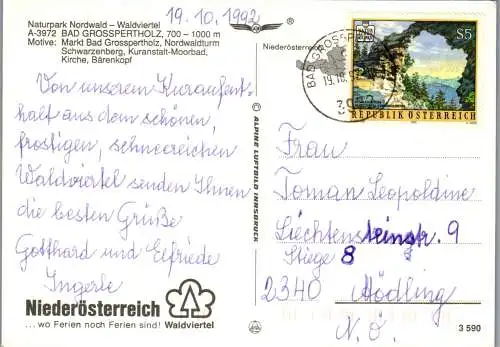 19.10.1992
Naturpark Nordwald – Waldviertel
A-3972 BAD GROSSPERTHOLZ, 700 – 1000 m
Motive: Markt Bad Grosspertholz, Nordwaldturm
Schwarzenberg, Kuranstalt-Moorbad,
Kirche, Bärenkopf
Niederösterreich
BAD GROSSPE
19.10.
S5
REPUBLIK ÖSTERREICH
Von unserem Kuraufent-
halt aus dem schönen,
frostigen, schneereichen
Waldviertel senden Ihnen
die besten Grüße
Gotthard und Elfriede
Ingerle
© ALPINE LUFTBILD INNSBRUCK
Frau
Toman Leopoldine
Liechtensteinstr. 9
Stiege 8
2340 Mödling
N.Ö.
Niederösterreich
... wo Ferien noch Ferien sind! Waldviertel
3 590